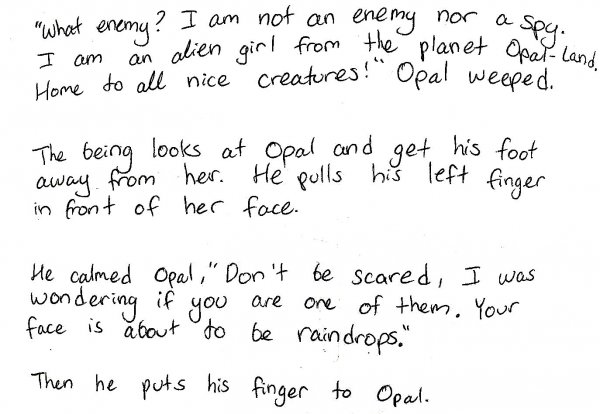 "What enemy? I am not an enemy nor a spy.
I am an alien girl from the planet Opal-Land.
Home to all nice creatures!" Opal weeped.
The being looks at Opal and get his foot
away from her. He pulls his left finger
in front of her face.
He calmed Opal, "Don't be scared, I was
wondering if you are one of them. Your
face is about to be raindrops."
Then he puts his finger to Opal.